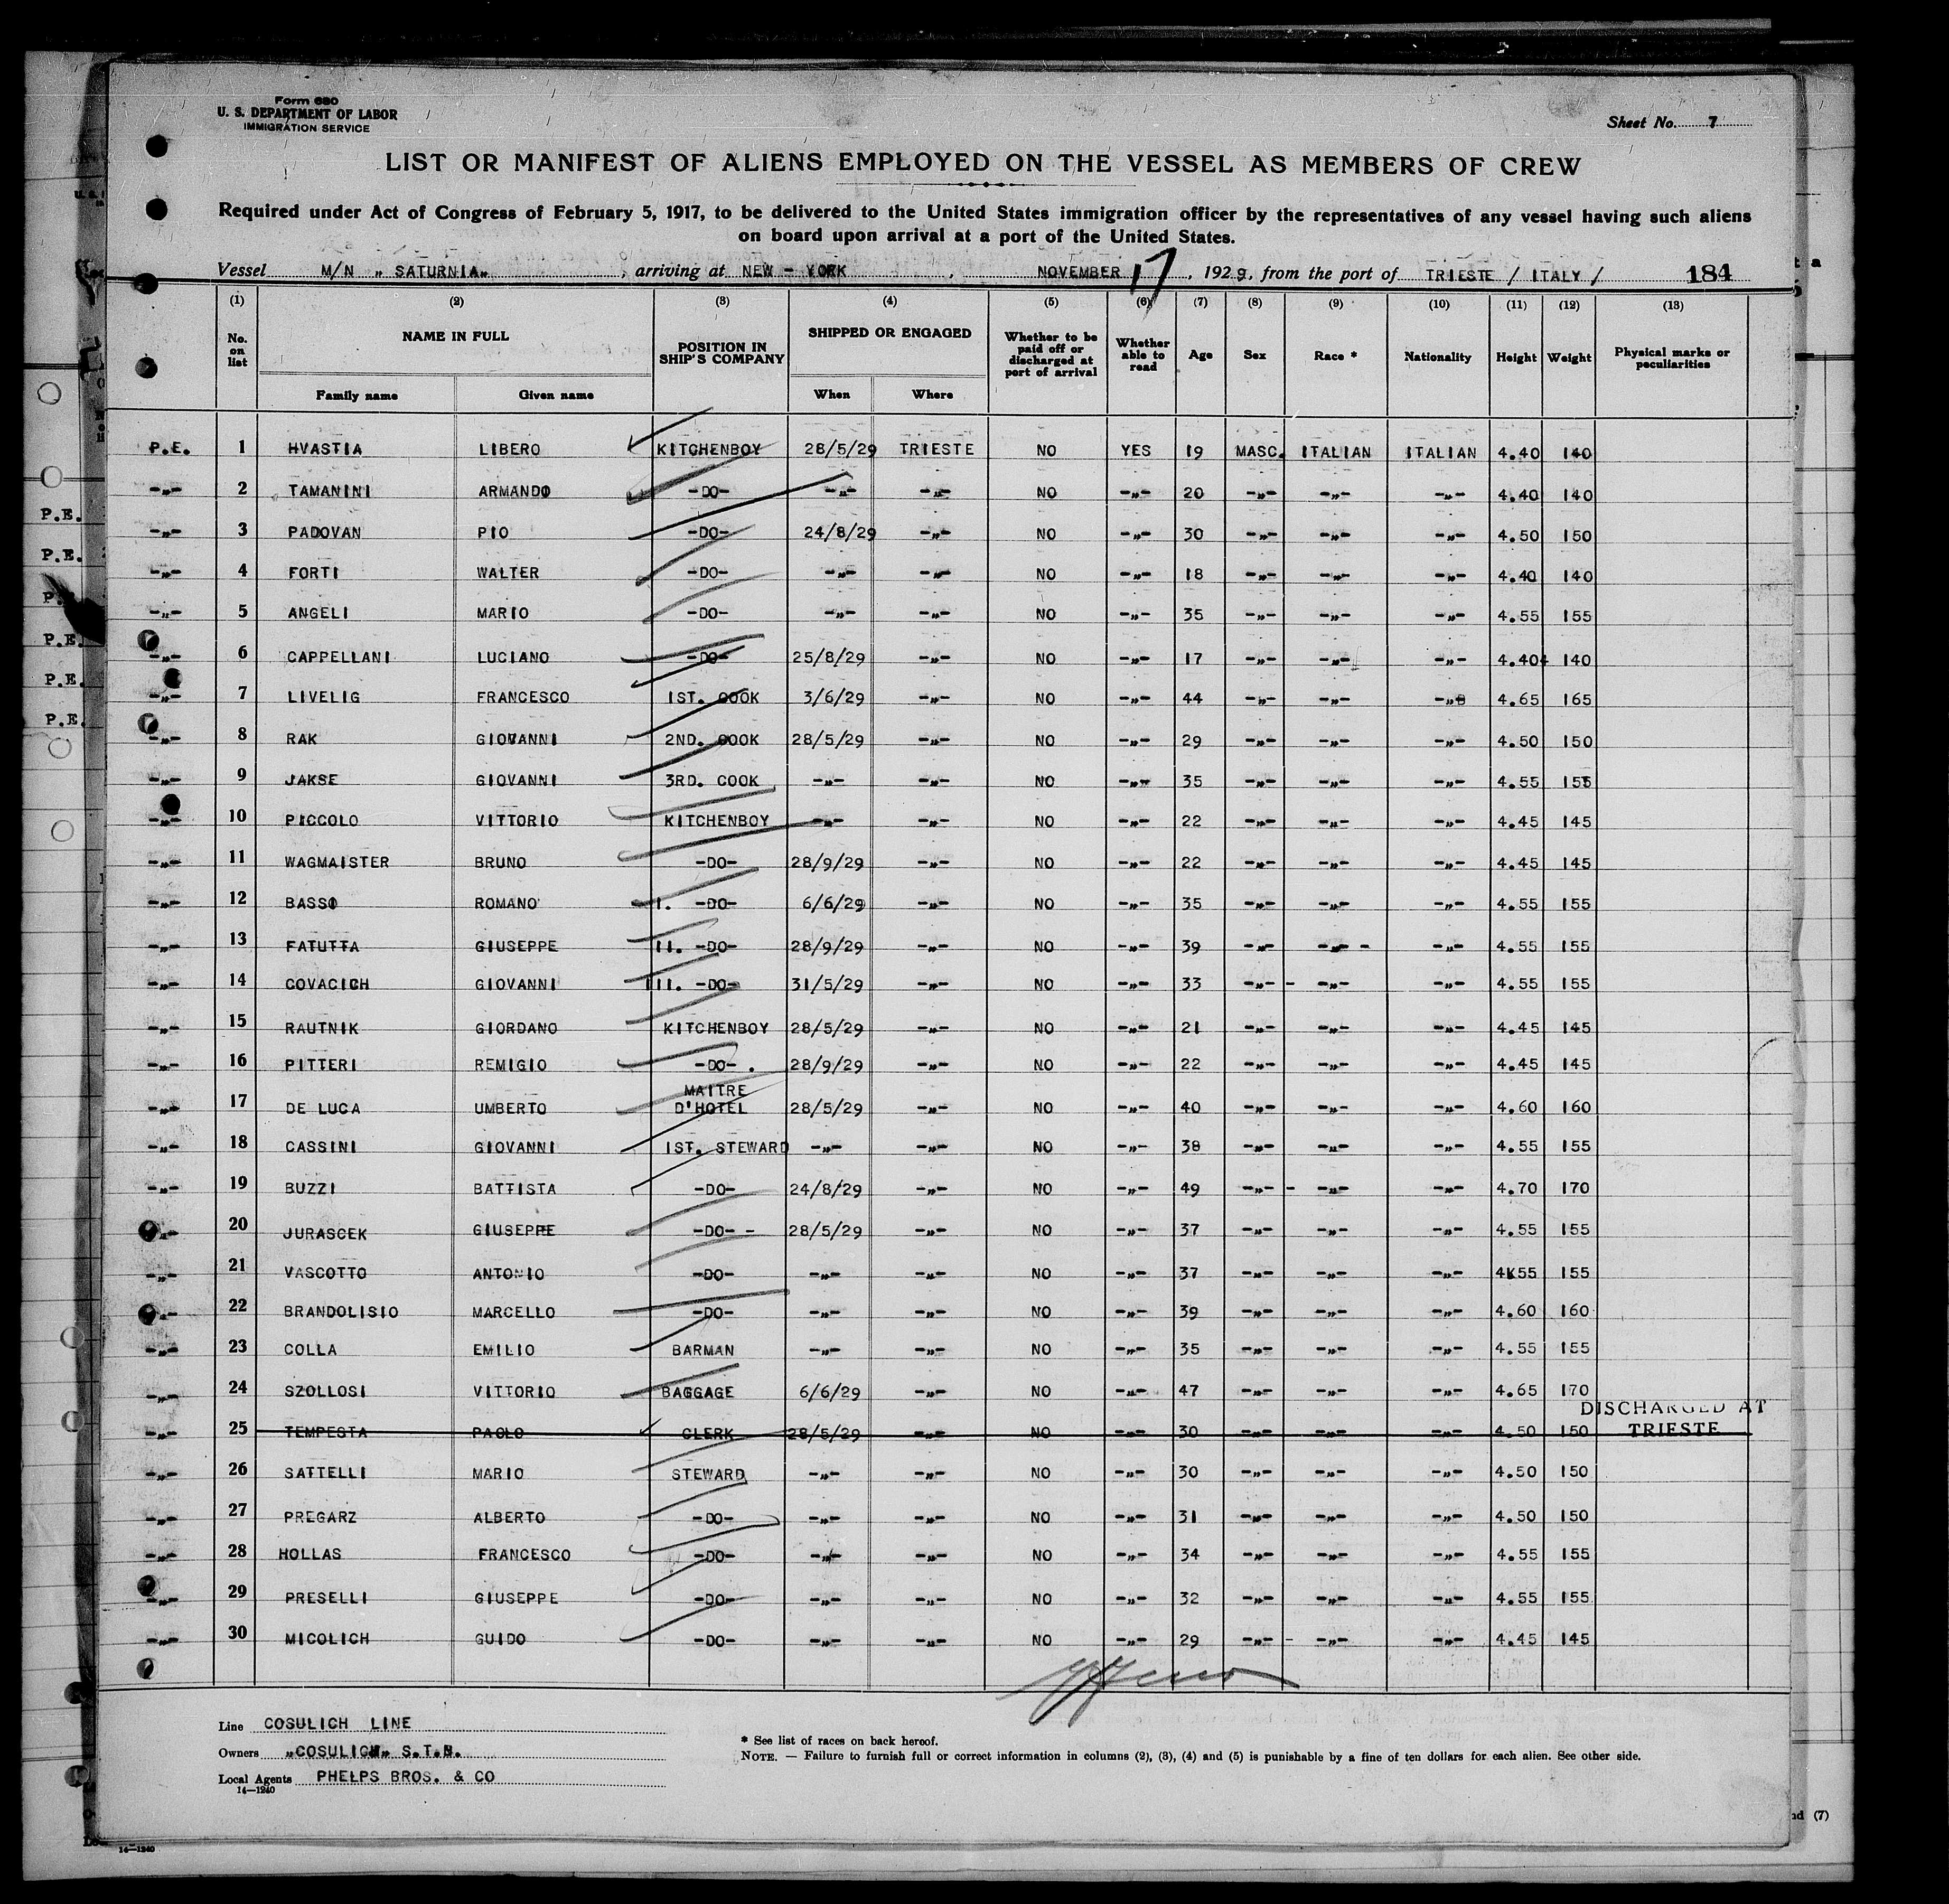 Form 680
U. S. DEPARTMENT OF LABOR
IMMIGRATION SERVICE
Sheet No. 7
LIST OR MANIFEST OF ALIENS EMPLOYED ON THE VESSEL AS MEMBERS OF CREW
Required under Act of Congress of February 5, 1917, to be delivered to the United States immigration officer by the representatives of any vessel having such aliens
on board upon arrival at a port of the United States.
Vessel M/N „ SATURNIA„ , arriving at NEW - YORK , NOVEMBER 17 , 1929, from the port of TRIESTE / ITALY / 184
(1) (2) (3) (4) (5) (6) (7) (8) (9) (10) (11) (12) (13)
No. on list NAME IN FULL Family name Given name POSITION IN SHIP'S COMPANY SHIPPED OR ENGAGED When Where Whether to be paid off or discharged at port of arrival Whether able to read Age Sex Race * Nationality Height Weight Physical marks or peculiarities
P.E. 1 HVASTIA LIBERO KITCHENBOY 28/5/29 TRIESTE NO YES 19 MASC. ITALIAN ITALIAN 4.40 140
-„- 2 TAMANINI ARMANDO -DO- -„- -„- NO -„- 20 -„- -„- -„- 4.40 140
-„- 3 PADOVAN PIO -DO- 24/8/29 -„- NO -„- 30 -„- -„- -„- 4.50 150
-„- 4 FORTI WALTER -DO- -„- -„- NO -„- 18 -„- -„- -„- 4.40 140
-„- 5 ANGELI MARIO -DO- -„- -„- NO -„- 35 -„- -„- -„- 4.55 155
-„- 6 CAPPELLANI LUCIANO -DO- 25/8/29 -„- NO -„- 17 -„- -„- -„- 4.40 140
-„- 7 LIVELIG FRANCESCO 1ST. COOK 3/6/29 -„- NO -„- 44 -„- -„- -„- 4.65 165
-„- 8 RAK GIOVANNI 2ND. COOK 28/5/29 -„- NO -„- 29 -„- -„- -„- 4.50 150
-„- 9 JAKSE GIOVANNI 3RD. COOK -„- -„- NO -„- 35 -„- -„- -„- 4.55 155
-„- 10 PICCOLO VITTORIO KITCHENBOY -„- -„- NO -„- 22 -„- -„- -„- 4.45 145
-„- 11 WAGMAISTER BRUNO -DO- 28/9/29 -„- NO -„- 22 -„- -„- -„- 4.45 145
-„- 12 BASSO ROMANO I. -DO- 6/6/29 -„- NO -„- 35 -„- -„- -„- 4.55 155
-„- 13 FATUTTA GIUSEPPE II. -DO- 28/9/29 -„- NO -„- 39 -„- -„- - -„- 4.55 155
-„- 14 COVACICH GIOVANNI III. -DO- 31/5/29 -„- NO -„- 33 -„- - -„- -„- 4.55 155
-„- 15 RAUTNIK GIORDANO KITCHENBOY 28/5/29 -„- NO -„- 21 -„- -„- -„- 4.45 145
-„- 16 PITTERI REMIGIO -DO- . 28/9/29 -„- NO -„- 22 -„- -„- -„- 4.45 145
-„- 17 DE LUCA UMBERTO MAITRE D'HOTEL 28/5/29 -„- NO -„- 40 -„- -„- -„- 4.60 160
-„- 18 CASSINI GIOVANNI 1ST. STEWARD -„- -„- NO -„- 38 -„- -„- -„- 4.55 155
-„- 19 BUZZI BATTISTA -DO- 24/8/29 -„- NO -„- 49 -„- - -„- -„- 4.70 170
-„- 20 JURASCEK GIUSEPPE -DO- - 28/5/29 -„- NO -„- 37 -„- -„- -„- 4.55 155
-„- 21 VASCOTTO ANTONIO -DO- -„- -„- NO -„- 37 -„- -„- -„- 4K55 155
-„- 22 BRANDOLISIO MARCELLO -DO- -„- -„- NO -„- 39 -„- -„- -„- 4.60 160
-„- 23 COLLA EMILIO BARMAN -„- -„- NO -„- 35 -„- -„- -„- 4.55 155
-„- 24 SZOLLOSI VITTORIO BAGGAGE 6/6/29 -„- NO -„- 47 -„- -„- -„- 4.65 170
-„- 25 TEMPESTA PAOLO CLERK 28/5/29 -„- NO -„- 30 -„- -„- -„- 4.50 150 DISCHARGED AT TRIESTE
-„- 26 SATTELLI MARIO STEWARD -„- -„- NO -„- 30 -„- -„- -„- 4.50 150
-„- 27 PREGARZ ALBERTO -DO- -„- -„- NO -„- 31 -„- -„- -„- 4.50 150
-„- 28 HOLLAS FRANCESCO -DO- -„- -„- NO -„- 34 -„- -„- -„- 4.55 155
-„- 29 PRESELLI GIUSEPPE -DO- -„- -„- NO -„- 32 -„- -„- -„- 4.55 155
-„- 30 MICOLICH GUIDO -DO- -„- -„- NO -„- 29 -„- - -„- -„- 4.45 145
Line COSULICH LINE
Owners „COSULICH„ S.T.N.
Local Agents PHELPS BROS. & CO
14—1240
* See list of races on back hereof.
NOTE. — Failure to furnish full or correct information in columns (2), (3), (4) and (5) is punishable by a fine of ten dollars for each alien. See other side.
14—1240
P.E.
P.E.
P.E.
P.E.
P.E.
nd (7)